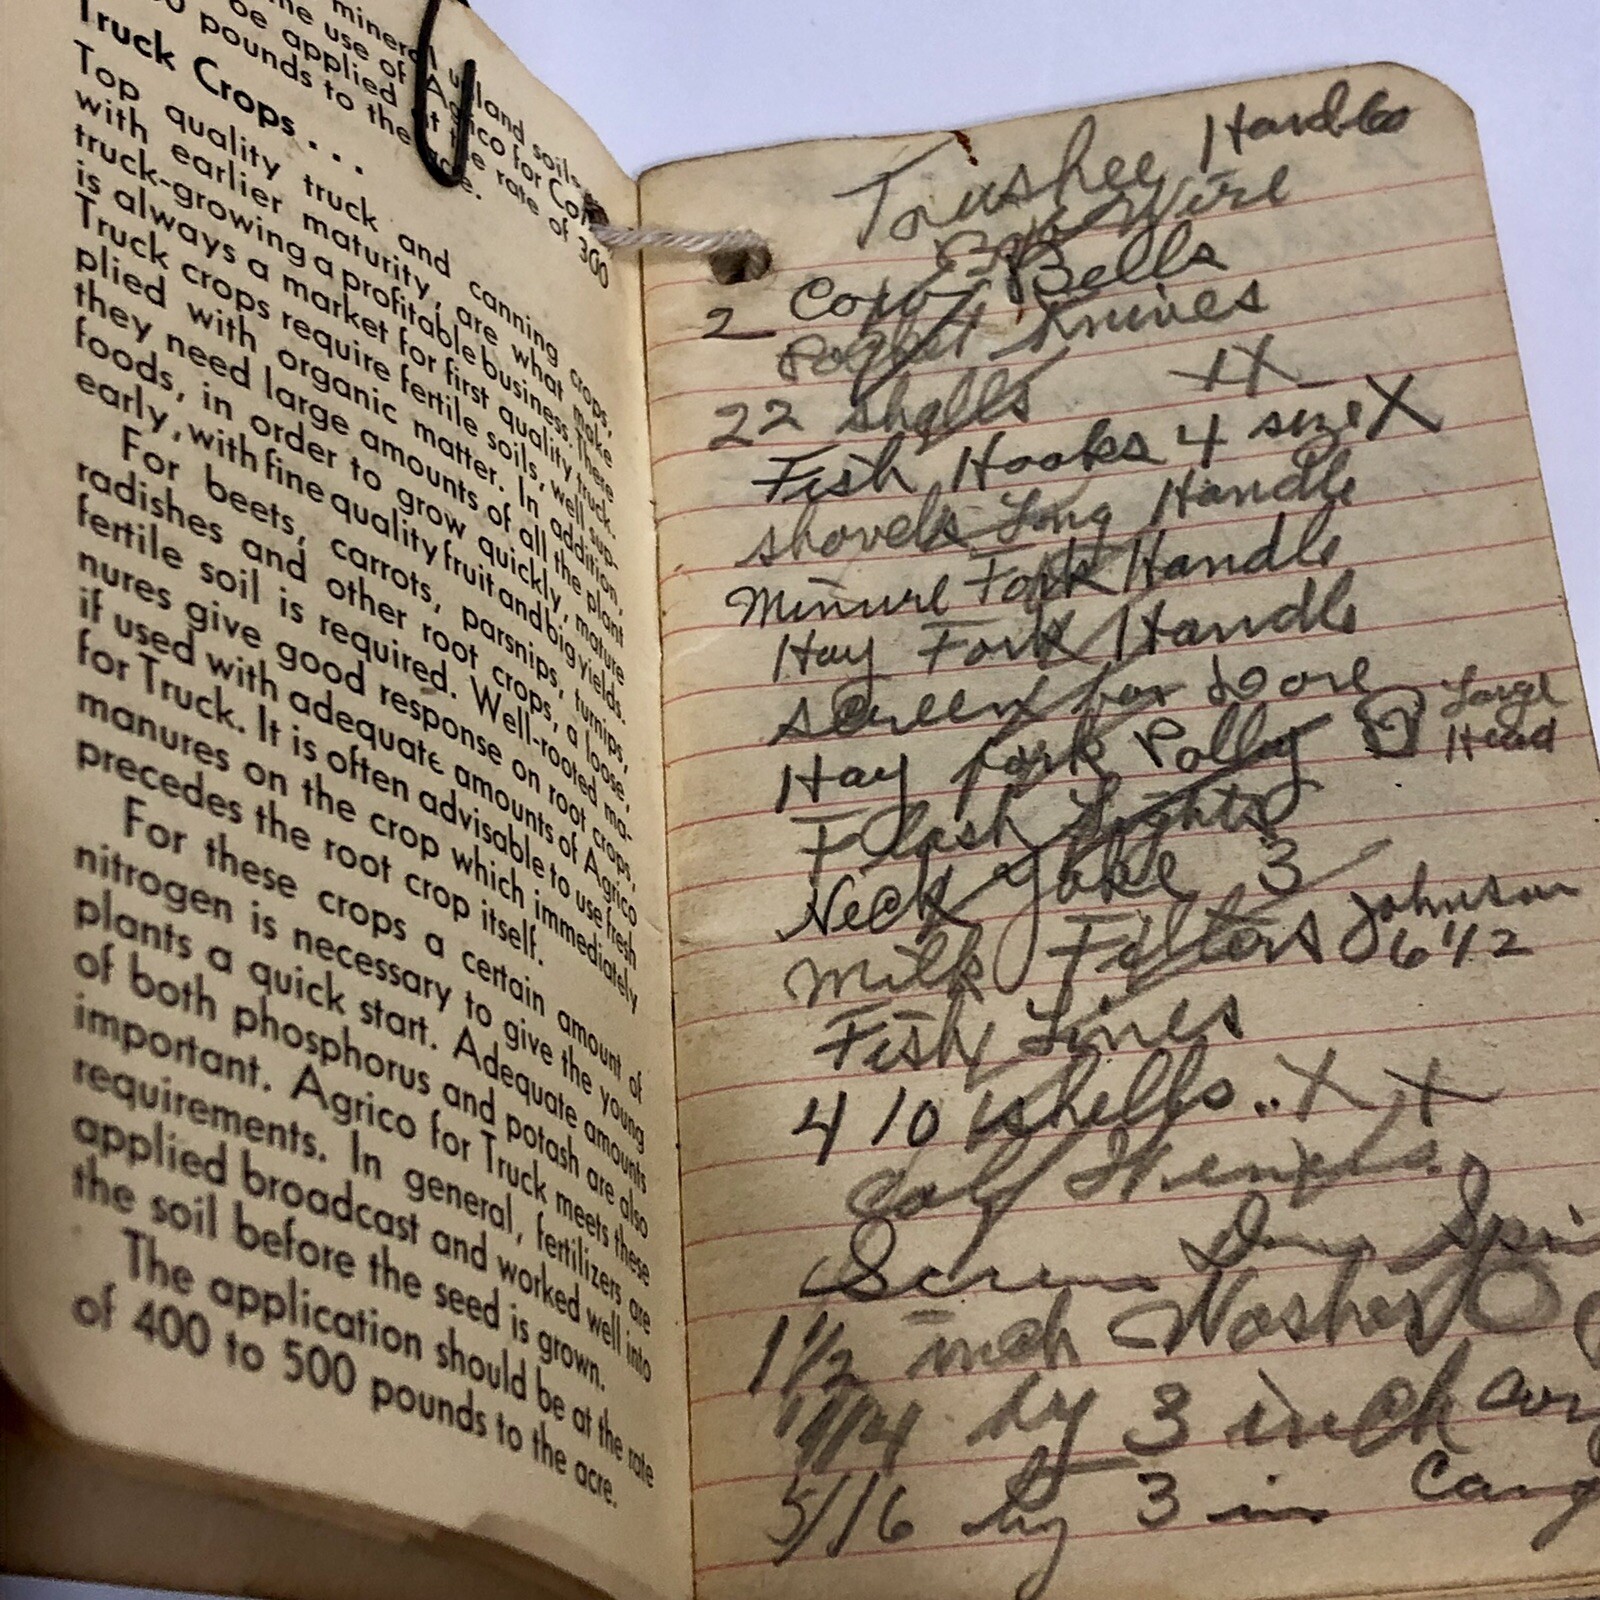 mineral upland soils
the use of Agrico for Corn
be applied at the rate of 300
pounds to the acre.
Truck Crops . . .
Top quality truck and canning crops,
with earlier maturity, are what make
truck-growing a profitable business. There
is always a market for first quality truck.
Truck crops require fertile soils, well sup-
plied with organic matter. In addition,
they need large amounts of all the plant
foods, in order to grow quickly, mature
early, with fine quality fruit and big yields.
For beets, carrots, parsnips, turnips,
radishes and other root crops, a loose,
fertile soil is required. Well-rooted ma-
nures give good response on root crops,
if used with adequate amounts of Agrico
for Truck. It is often advisable to use fresh
manures on the crop which immediately
precedes the root crop itself.
For these crops a certain amount of
nitrogen is necessary to give the young
plants a quick start. Adequate amounts
of both phosphorus and potash are also
important. Agrico for Truck meets these
requirements. In general, fertilizers are
applied broadcast and worked well into
the soil before the seed is grown.
The application should be at the rate
of 400 to 500 pounds to the acre.
Handles
Wire
2 Cow Bells
Pocket Knives
22 shells XX
Fish Hooks 4 size X
shovels Long Handle
Minure Fork Handle
Hay Fork Handle
screen for dore
Hay fork Polly Large Head
Flash Lights
Neck Yoke 3
Milk Filters Johnson 6 1/2
Fish Lines
4 10 shells .. X X
Calf
Screen Door
1 1/2 inch Washer
1/4 by 3 inch
5/16 by 3 in